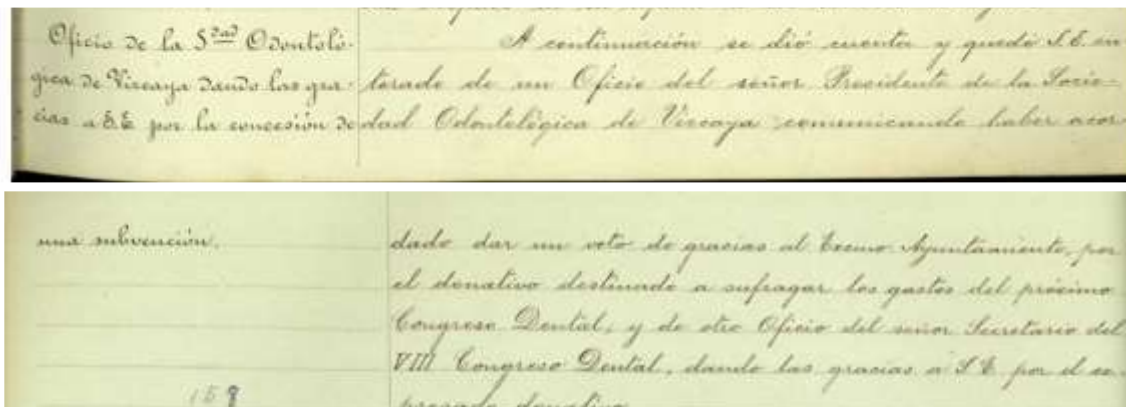 Oficio de la S.dad Odontoló-
gica de Vizcaya dando las gra-
cias a S.E. por la concesión de
A continuación se dió cuenta y quedó S.E. en
terado de un Oficio del señor Presidente de la Socie-
dad Odontológica de Vizcaya comunicando haber acor
una subvención.
158
dado dar un voto de gracias al Excmo Ayuntamiento, por
el donativo destinado a sufragar los gastos del próximo
Congreso Dental, y de otro Oficio del señor Secretario del
VIII Congreso Dental, dando las gracias a S.E. por el ex-
presado donativo.